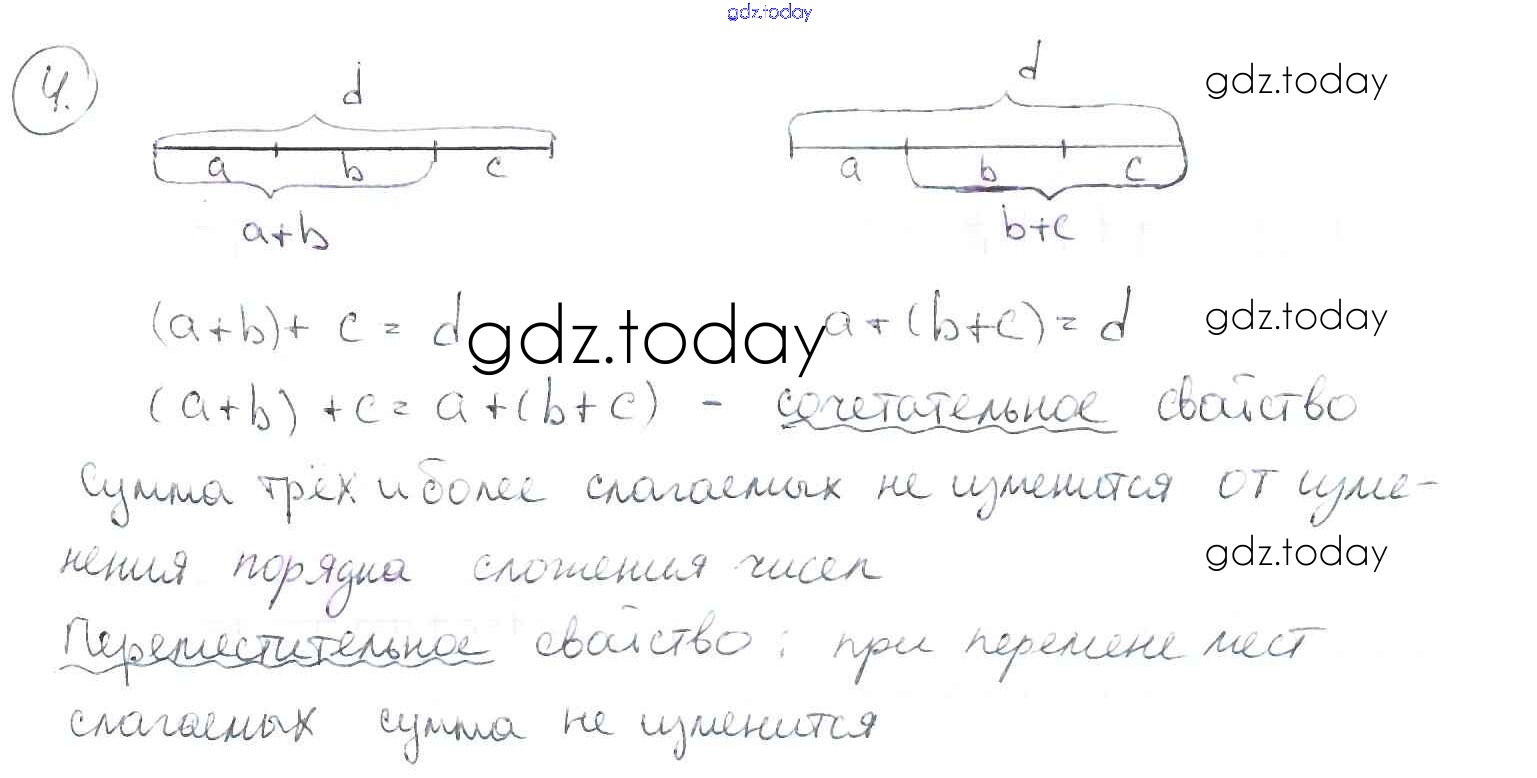 gdz.today
4.
d d gdz.today
a b c a b c
a+b b+c
(a+b)+ c = d gdz.today a + (b+c) = d gdz.today
(a+b) + c = a + (b+c) - сочетательное свойство
Сумма трёх и более слагаемых не изменится от изме-
нения порядка сложения чисел gdz.today
Переместительное свойство: при перемене мест
слагаемых сумма не изменится